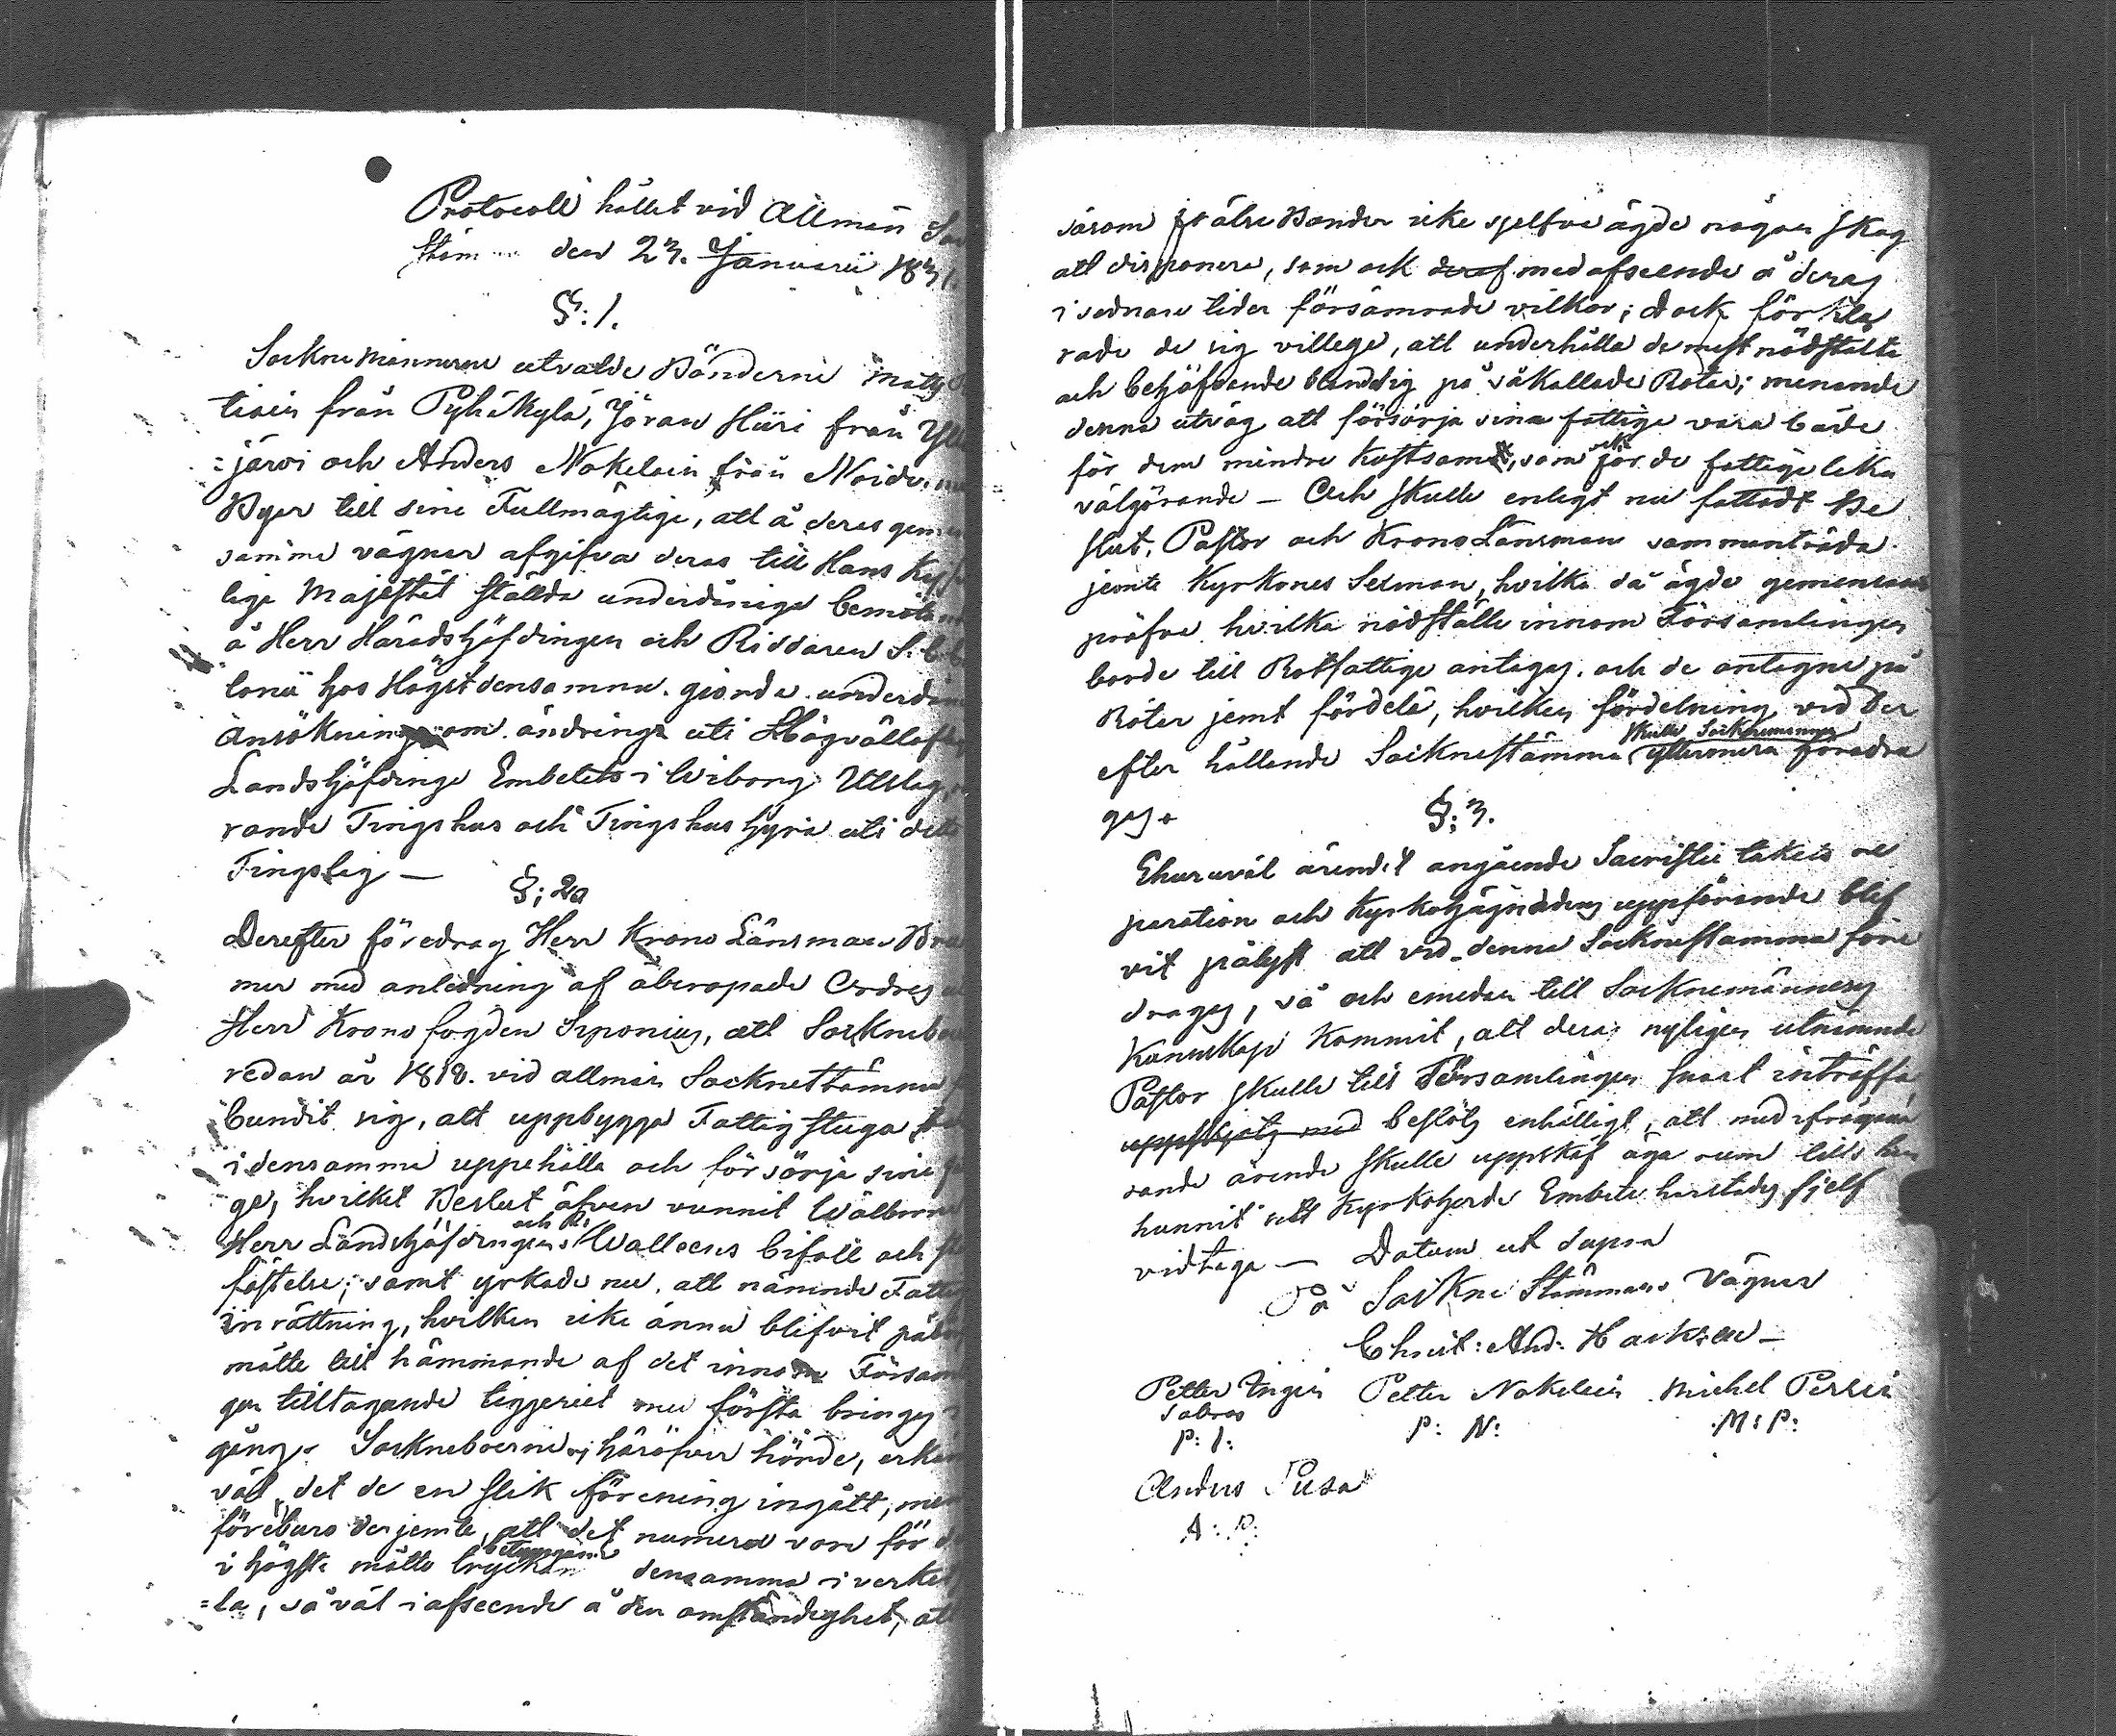 Protocoll hållet vid Allmän
den 23. Januarii 1831.
§: 1.
Sockne Männerne utvalde Bönderne
från Pyhäkylä, Jöran Hiiri från
=järvi och Anders Nokelain från
Byar till sine Fullmägtige, att å deras
samma vägnar afgifva deras till Hans
lige Majestät ställda underdånige
å Herr Häradshöfdingen och Riddaren
hos Högstdensamme giorde
Ansökning om ändring uti
Landshöfdinge Embetets i Wiborg
rande Tingshus och Tingshus hyra uti
Tingslag —
§; 2a
Derefter föredrog Herr Krono Länsman
mer med anledning af åberopade Ordres
Herr Krono fogden Siponius, att
redan år 1818. vid allmän Socknestämma
bundit sig, att uppbygga Fattigstuga
i densamma uppehålla och försörja sine
ga, hvilket Beslut äfven vunnit
Herr Landshöfdingens och R: Walleens bifall och
fästelse; samt yrkade nu, att nämnde
inrättning, hvilken icke ännu blifvit
måtte till hämmande af det innom
gen tilltagande tiggeriet med första bringas
gång. Sockneboerne, häröfver hörde,
väl, det de en slik förening ingått,
föreburo derjemte, att det numera vore för
i högsta måtto betungande densamma i
=la, så väl i afseende å den omständighet,
såsom Frälse Bönder icke sjelfve ägde någon skog
att disponera, som ock deraf med afseende å deras
i sednare tider försämrade vilkor; dock förkla
rade de sig villige, att underhålla de mest nödstälte
och behöfvande bland sig på såkallade Rotar; menande
denna utväg att försörja sina fattige vara både
för dem mindre kostsam, som ock för de fattige lika
välgörande — Och skulle enligt nu fattadt Be
slut, Pastor och Krono Länsman sammanträda
jemte Kyrkones Sexman, hvilka då ägde gemensamt
pröfva hvilka nödställte innom Församlingen
borde till Rotfattige antagas, och de antagne på
Rotar jemt fördela, hvilken fördelning vid der
efter hållande Socknestämma skulle Socknemännen yttermera föredra
gas.
§: 3.
Ehuruväl ärendet angående Sacristie takets re
paration och Kyrkohägnadens uppförande blif
vit pålyst att vid denna Socknestämma före
dragas, så och emedan till Socknemännens
Kunnskap kommit, att deras nyligen utnämnde
Pastor skulle till Församlingen snart inträffa
uppskjöts med beslöts enhälligt, att med ifrågava
rande ärende skulle uppskof äga rum tills han
hunnit sitt Kyrkoherde Embete härstädes sjelf
vidtaga — Datum ut supra
På Sockne Stämmans Vägnar
Petter Petter Nokelain Michel
P: I: P: N: M: P:
Anders Pusa
A: P: